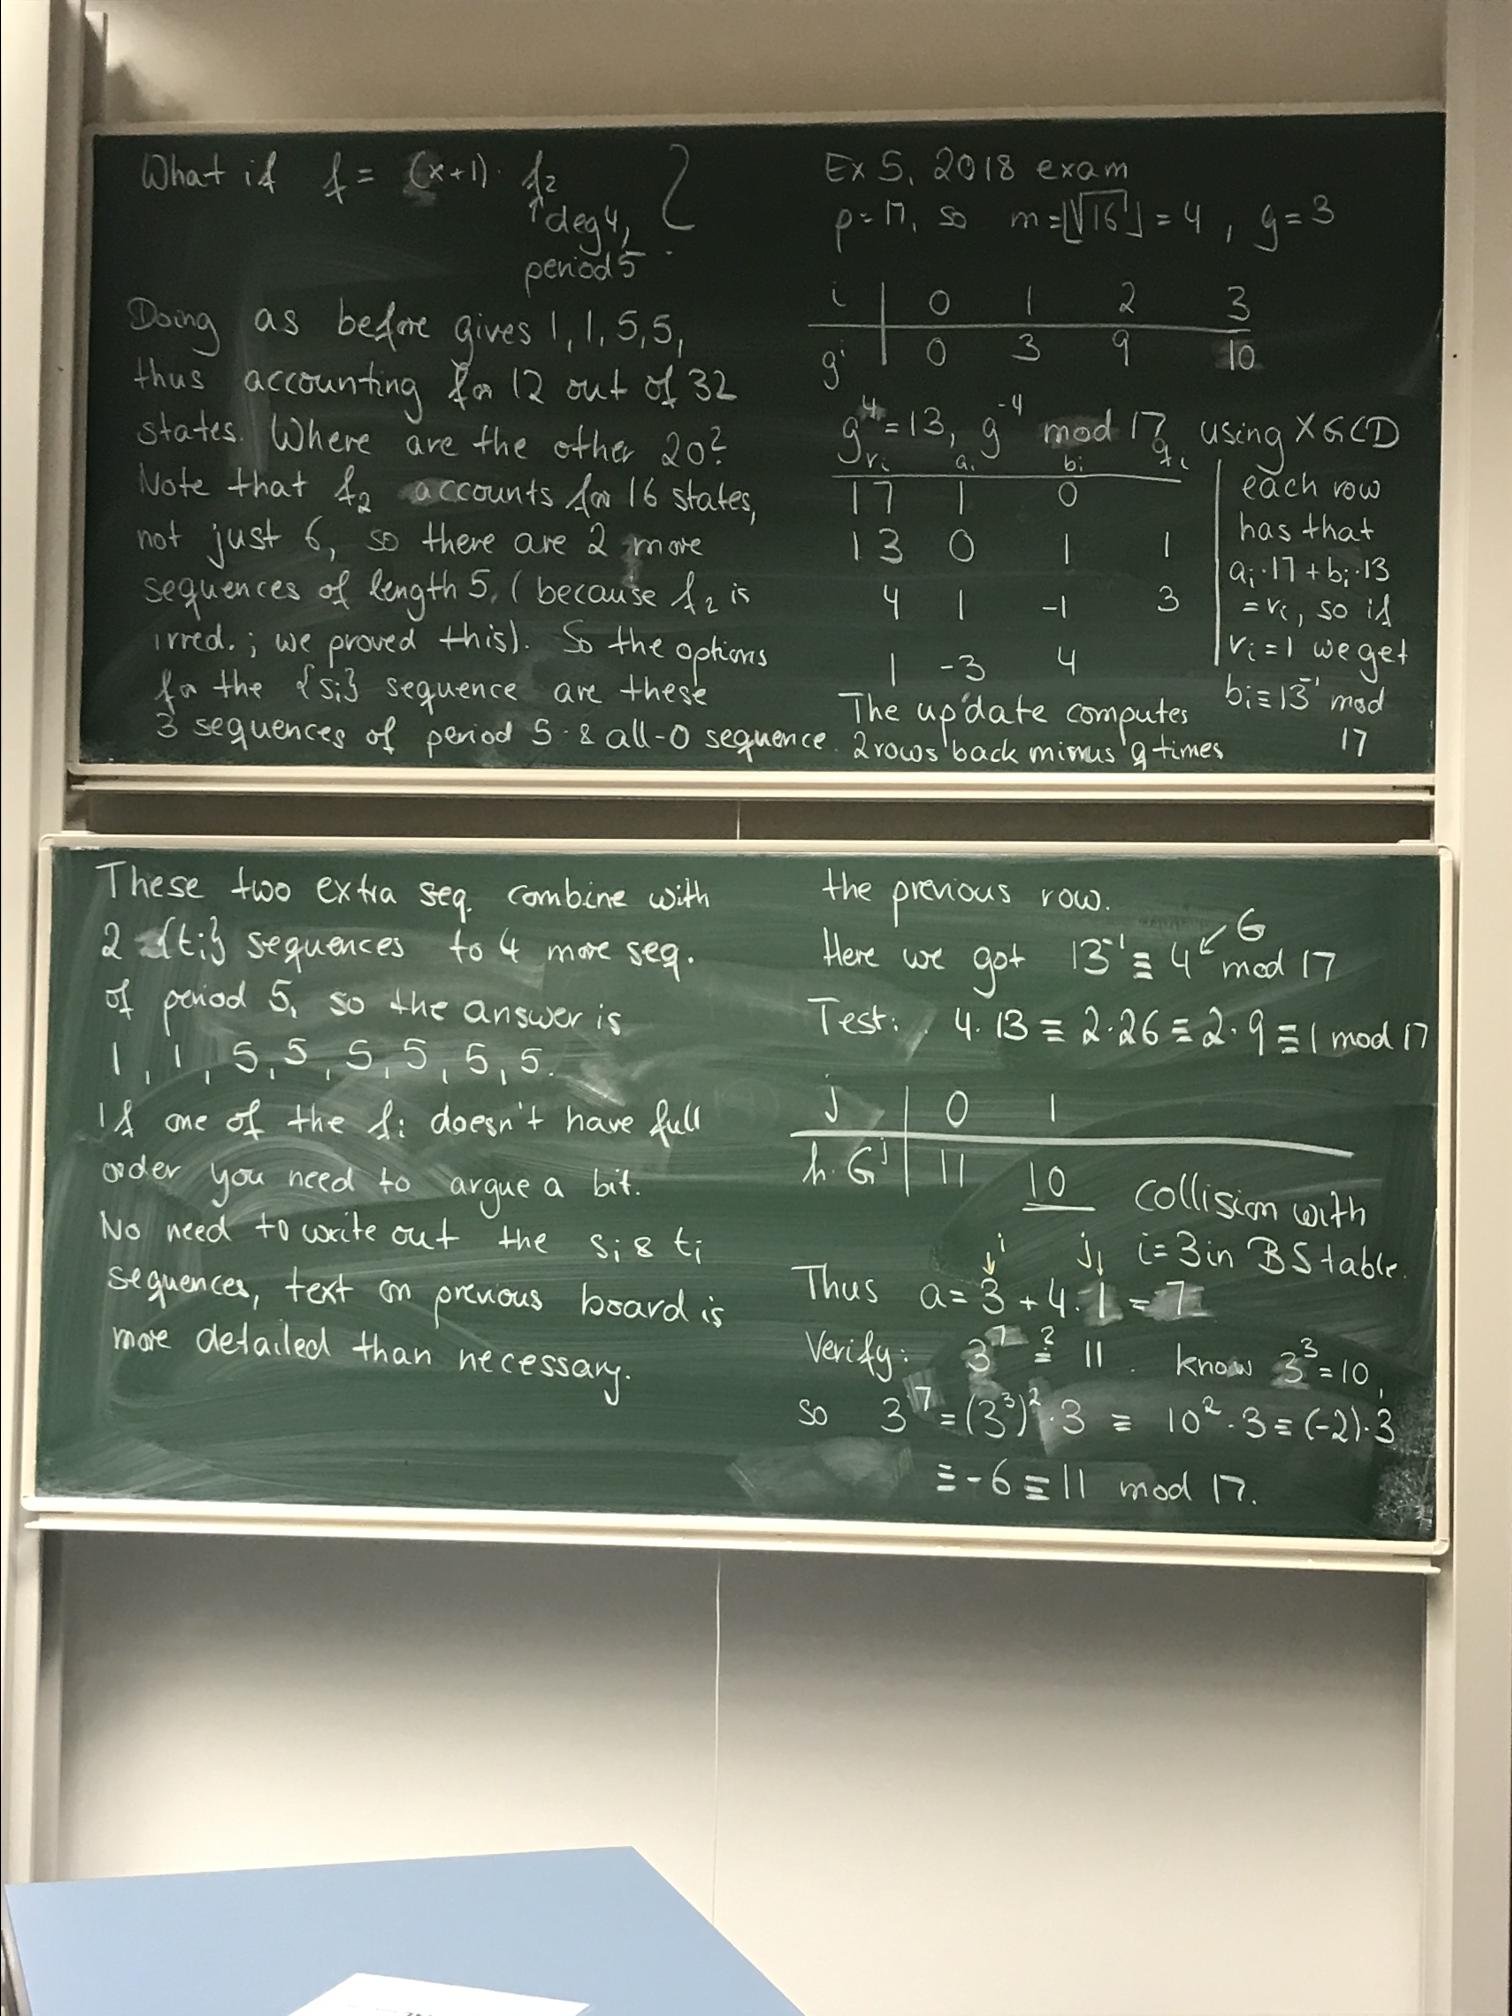 What if f = (x+1) · f₂ ?
↑deg 4,
period 5
Doing as before gives 1, 1, 5, 5,
thus accounting for 12 out of 32
states. Where are the other 20?
Note that f₂ accounts for 16 states,
not just 6, so there are 2 more
sequences of length 5, (because f₂ is
irred.; we proved this). So the options
for the {si} sequence are these
3 sequences of period 5 & all-0 sequence.
Ex 5, 2018 exam
p=17, so m=⌊√16⌋=4, g=3
i | 0 1 2 3
gⁱ | 0 3 9 10
g⁴=13, g⁻⁴ mod 17 using XGCD
rᵢ aᵢ bᵢ qᵢ
17 1 0
13 0 1 1
4 1 -1 3
1 -3 4
each row
has that
aᵢ·17+bᵢ·13
=rᵢ, so if
rᵢ=1 we get
bᵢ≡13⁻¹ mod
17
The update computes
2 rows back minus q times
These two extra seq. combine with
2 {ti} sequences to 4 more seq.
of period 5, so the answer is
1, 1, 5, 5, 5, 5, 5, 5.
If one of the fi doesn't have full
order you need to argue a bit.
No need to write out the si & ti
sequences, text on previous board is
more detailed than necessary.
the previous row.
Here we got 13⁻¹ ≡ 4 ↙G mod 17
Test: 4·13 ≡ 2·26 ≡ 2·9 ≡ 1 mod 17
j | 0 1
h·Gʲ | 11 10 Collision with
i=3 in BS table.
↓i j↓
Thus a = 3 + 4·1 = 7
Verify: 3⁷ ≟ 11. know 3³=10,
so 3⁷ = (3³)²·3 ≡ 10²·3 ≡ (-2)·3
≡ -6 ≡ 11 mod 17.